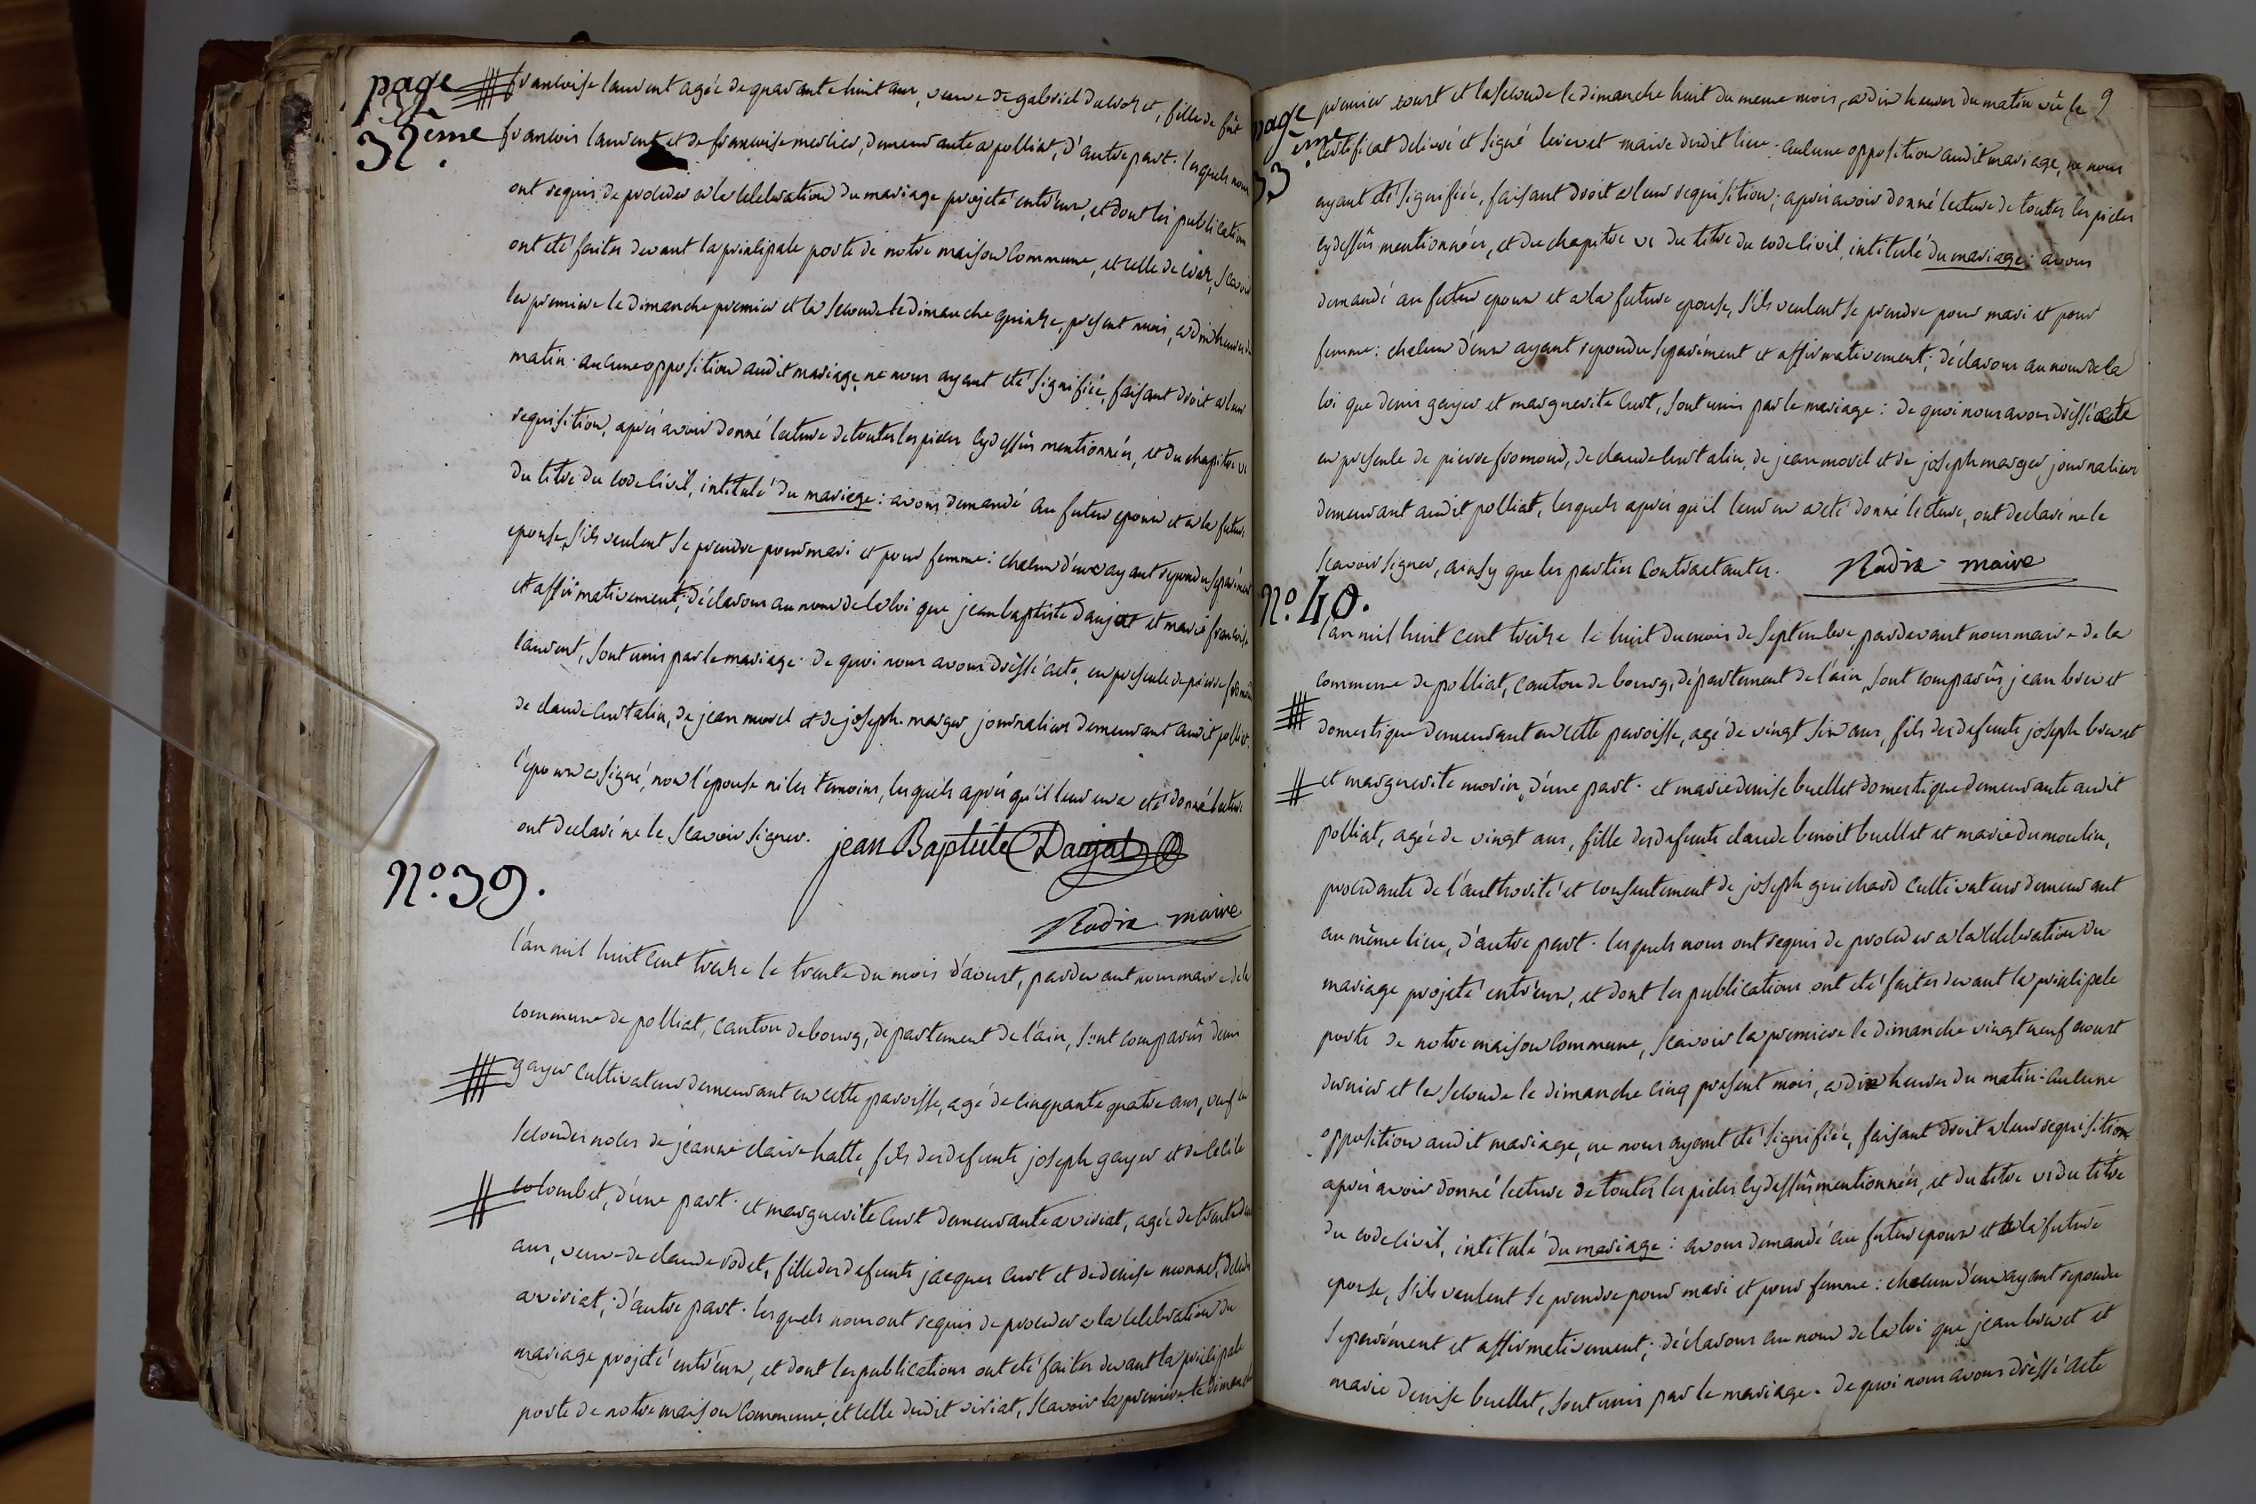 page
32ème.
françoise laurent agée de quarante huit ans, veuve de gabriel ducrozet, fille de fût
françois laurent et de françoise meslier, demeurante a polliat, d'autre part. lesquels nous
ont requis de proceder a la celebration du mariage projeté entr'eux, et dont les publications
ont eté faites devant la principale porte de notre maison commune, et celle de , scavoir
la premiere le dimanche premier et la seconde le dimanche quinze, present mois, a dix heures du
matin. aucune opposition audit mariage ne nous ayant eté signifiée, faisant droit a leur
requisition, après avoir donné lecture de toutes les pieces cydessûs mentionnées, et du chapitre vi
du titre du code civil, intitulé du mariage: avons demandé au futur epoux et a la future
epouse, s'ils veulent se prendre pour mari et pour femme: chacun d'eux ayant repondu separement
et affirmativement; déclarons au nom de la loi que jean baptiste daujat et marie françoise
laurent, sont unis par le mariage. de quoi nous avons dressé acte, en presence de pierre fromond
de claude curtalin, de jean morel et de joseph marger journaliers demeurant audit polliat.
l'epoux a signé, non l'epouse ni les temoins, lesquels après qu'il leur en a eté donné lecture
ont declaré ne le scavoir signer. jean Baptiste Daujat
Rodix maire
N.o 39.
l'an mil huit cent treize le trente du mois d'aoust, pardevant nous maire de la
commune de polliat, canton de bourg, département de l'ain, sont comparûs denis
gayer cultivateur demeurant en cette paroisse, agé de cinquante quatre ans, veuf en
secondes noces de jeanne claire hatte, fils des defunts joseph gayer et de cecile
colombet, d'une part. et marguerite curt demeurante a viriat, agée de trente deux
ans, veuve de claude rodet, fille des defunts jacques curt et de denise monnet,
a viriat, d'autre part. lesquels nous ont requis de proceder a la celebration du
mariage projeté entr'eux, et dont les publications ont eté faites devant la principale
porte de notre maison commune, et celle dudit viriat, scavoir la premiere le dimanche
page 9
33ème
premier aoust et la seconde le dimanche huit du meme mois, a dix heures du matin vû le
certificat delivré et signé maire dudit lieu. aucune opposition audit mariage, ne nous
ayant eté signifiée, faisant droit a leur requisition; après avoir donné lecture de toutes les pieces
cydessûs mentionnées, et du chapitre vi du titre du code civil, intitulé du mariage: avons
demandé au futur epoux et a la future epouse, s'ils veulent se prendre pour mari et pour
femme: chacun d'eux ayant repondu separément et affirmativement; déclarons au nom de la
loi que denis gayer et marguerite curt, sont unis par le mariage: de quoi nous avons dréssé acte
en presence de pierre fromond, de claude curtalin, de jean morel et de joseph marger journaliers
demeurant audit polliat, lesquels après qu'il leur en a eté donné lecture, ont declaré ne le
scavoir signer, ainsy que les parties contractantes. Rodix maire
N.o 40.
l'an mil huit cent treize le huit du mois de septembre, pardevant nous maire de la
commune de polliat, canton de bourg, département de l'ain, sont comparûs jean brevet
domestique demeurant en cette paroisse, agé de vingt six ans, fils des defunts joseph brevet
et marguerite morin, d'une part. et marie denise buellet domestique demeurante audit
polliat, agée de vingt ans, fille des defunts claude benoit buellet et marie dumoulin,
procedante de l'authorité et consentement de joseph guichard cultivateur demeurant
au même lieu, d'autre part. lesquels nous ont requis de proceder a la celebration du
mariage projeté entr'eux, et dont les publications ont eté faites devant la principale
porte de notre maison commune, scavoir la premiere le dimanche vingt neuf aoust
dernier et la seconde le dimanche cinq present mois, a dix heures du matin. aucune
opposition audit mariage, ne nous ayant eté signifiée, faisant droit a leur requisition
après avoir donné lecture de toutes les pieces cydessûs mentionnées, et du titre vi du titre
du code civil, intitulé du mariage: avons demandé au futur epoux et a la future
epouse, s'ils veulent se prendre pour mari et pour femme: chacun d'eux ayant repondu
separément et affirmativement; déclarons au nom de la loi que jean brevet et
marie denise buellet, sont unis par le mariage. de quoi nous avons dréssé acte